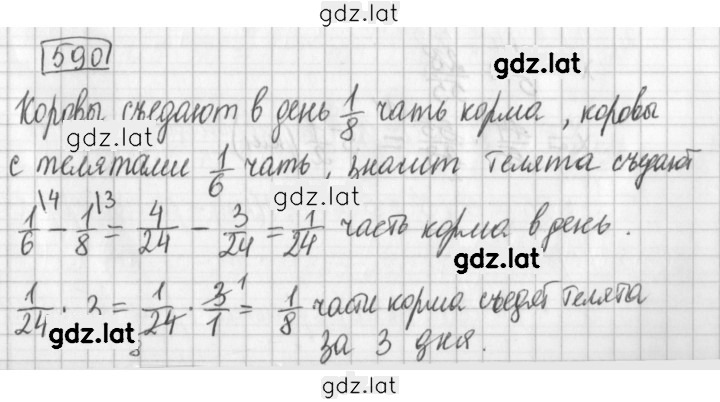 gdz.lat
590
Коровы съедают в день 1/8 чать корма, коровы
gdz.lat
с телятами 1/6 чать, значит телята съедают
gdz.lat
1/6\4 - 1/8\3 = 4/24 - 3/24 = 1/24 часть корма в день.
gdz.lat
1/24 · 3 = 1/24 8 · 3 1/1 = 1/8 части корма съедят телята
gdz.lat
за 3 дня.
gdz.lat